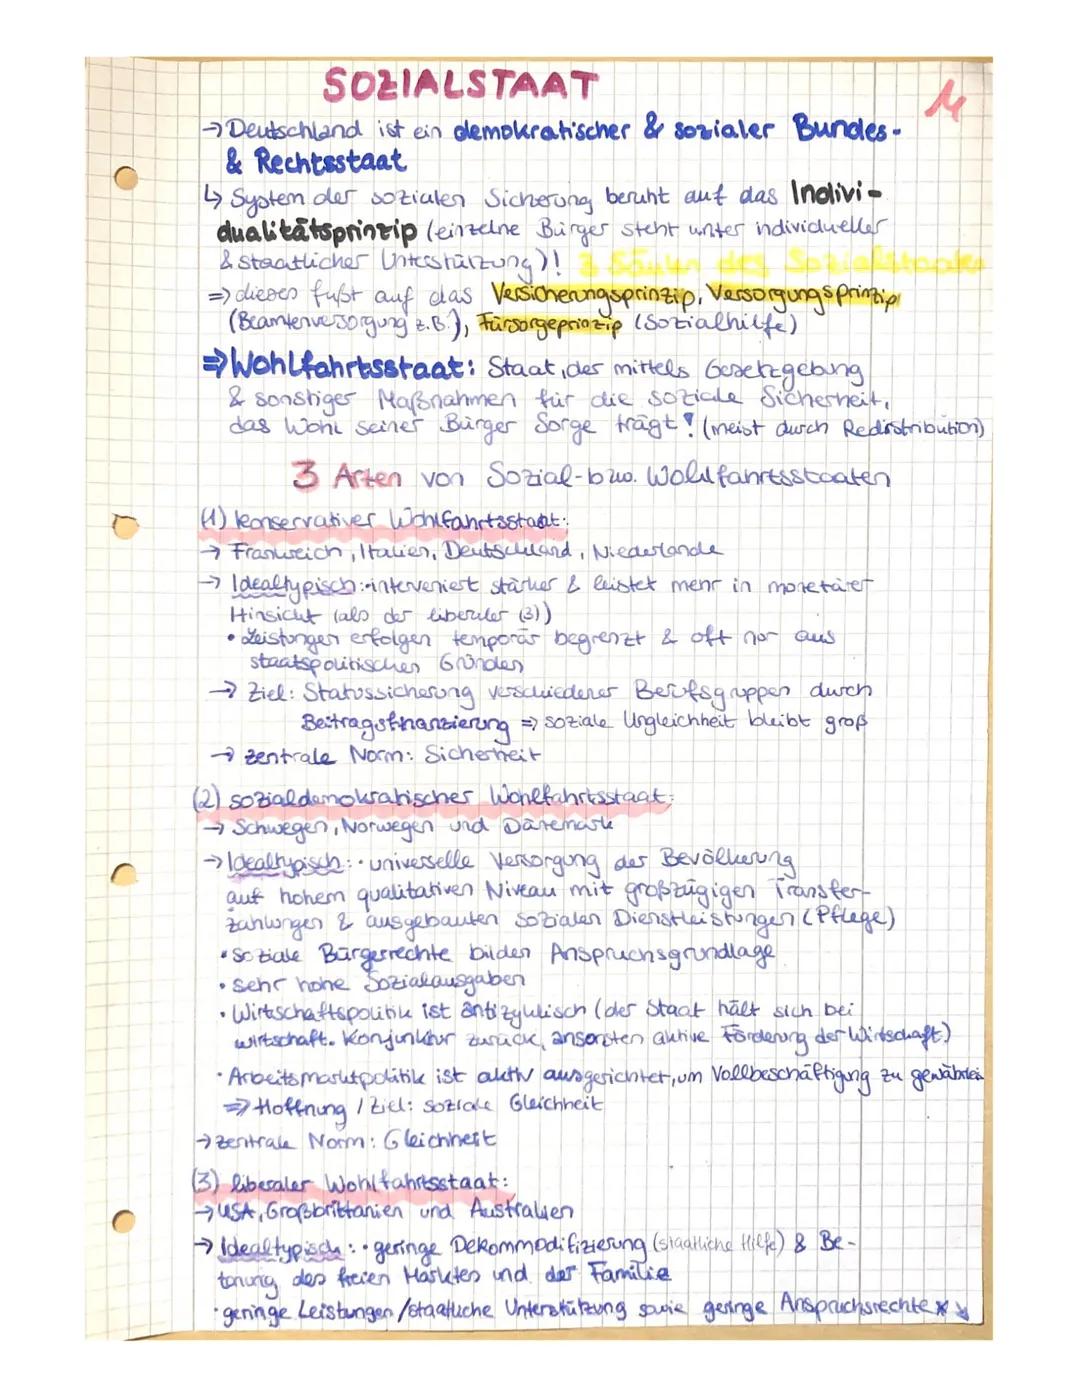 SOZIALSTAAT
→ Deutschland ist ein demokratischer & sozialer Bundes-
& Rechtsstaat
↳ System der sozialen Sicherung beruht auf das Indivi-
dualitätsprinzip (einzelne Bürger steht unter individueller
& staatlicher Unterstützung)! 3 Säulen des Sozialstaates
⇒ dieses fußt auf das Versicherungsprinzip, Versorgungsprinzip
(Beamtenversorgung z.B.), Fürsorgeprinzip (Sozialhilfe)
⇒ Wohlfahrtsstaat: Staat, der mittels Gesetzgebung
& sonstiger Maßnahmen für die soziale Sicherheit,
das Wohl seiner Bürger Sorge trägt! (meist durch Redistribution)
3 Arten von Sozial- bzw. Wohlfahrtsstaaten
(1) konservativer Wohlfahrtsstaat:
→ Frankreich, Italien, Deutschland, Niederlande
→ Idealtypisch: • interveniert stärker & leistet mehr in monetärer
Hinsicht (als der liberaler (3))
• Leistungen erfolgen temporär begrenzt & oft nur aus
staatspolitischen Gründen
→ Ziel: Statussicherung verschiedener Berufsgruppen durch
Beitragsfinanzierung ⇒ soziale Ungleichheit bleibt groß
→ zentrale Norm: Sicherheit
(2) sozialdemokratischer Wohlfahrtsstaat:
→ Schwegen, Norwegen und Dänemark
→ Idealtypisch: • universelle Versorgung der Bevölkerung
auf hohem qualitativen Niveau mit großzügigen Transfer-
zahlungen & ausgebauten sozialen Dienstleistungen (Pflege)
• soziale Bürgerrechte bilden Anspruchsgrundlage
• sehr hohe Sozialausgaben
• Wirtschaftspolitik ist antizyklisch (der Staat hält sich bei
wirtschaft. Konjunktur zurück, ansonsten aktive Förderung der Wirtschaft)
• Arbeitsmarktpolitik ist aktiv ausgerichtet, um Vollbeschäftigung zu
⇒ Hoffnung / Ziel: soziale Gleichheit
→ zentrale Norm: Gleichheit
(3) liberaler Wohlfahrtsstaat:
→ USA, Großbrittanien und Australien
→ Idealtypisch: • geringe Dekommodifizierung (staatliche Hilfe) & Be-
tonung des freien Marktes und der Familie
• geringe Leistungen / staatliche Unterstützung sowie geringe Anspruchsrechte